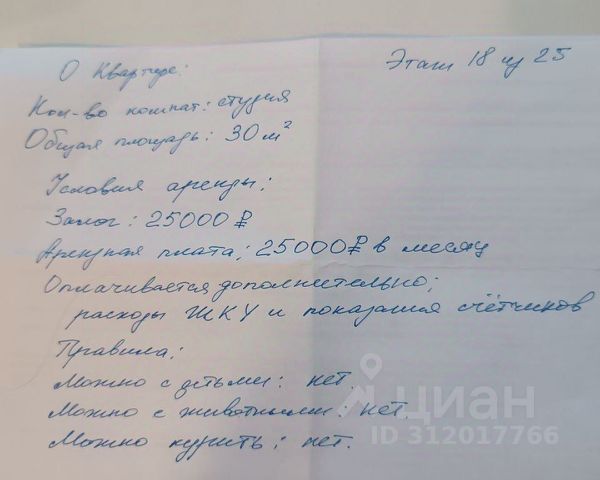 О Квартире:
Этаж 18 из 25
Кол-во комнат: студия
Общая площадь: 30 м²
Условия аренды:
Залог: 25000 ₽
Арендная плата: 25000 ₽ в месяц
Оплачивается дополнительно:
расходы ЖКУ и показания счётчиков
Правила:
Можно с детьми: нет.
Можно с животными: нет.
Можно курить: нет.
циан
ID 312017766